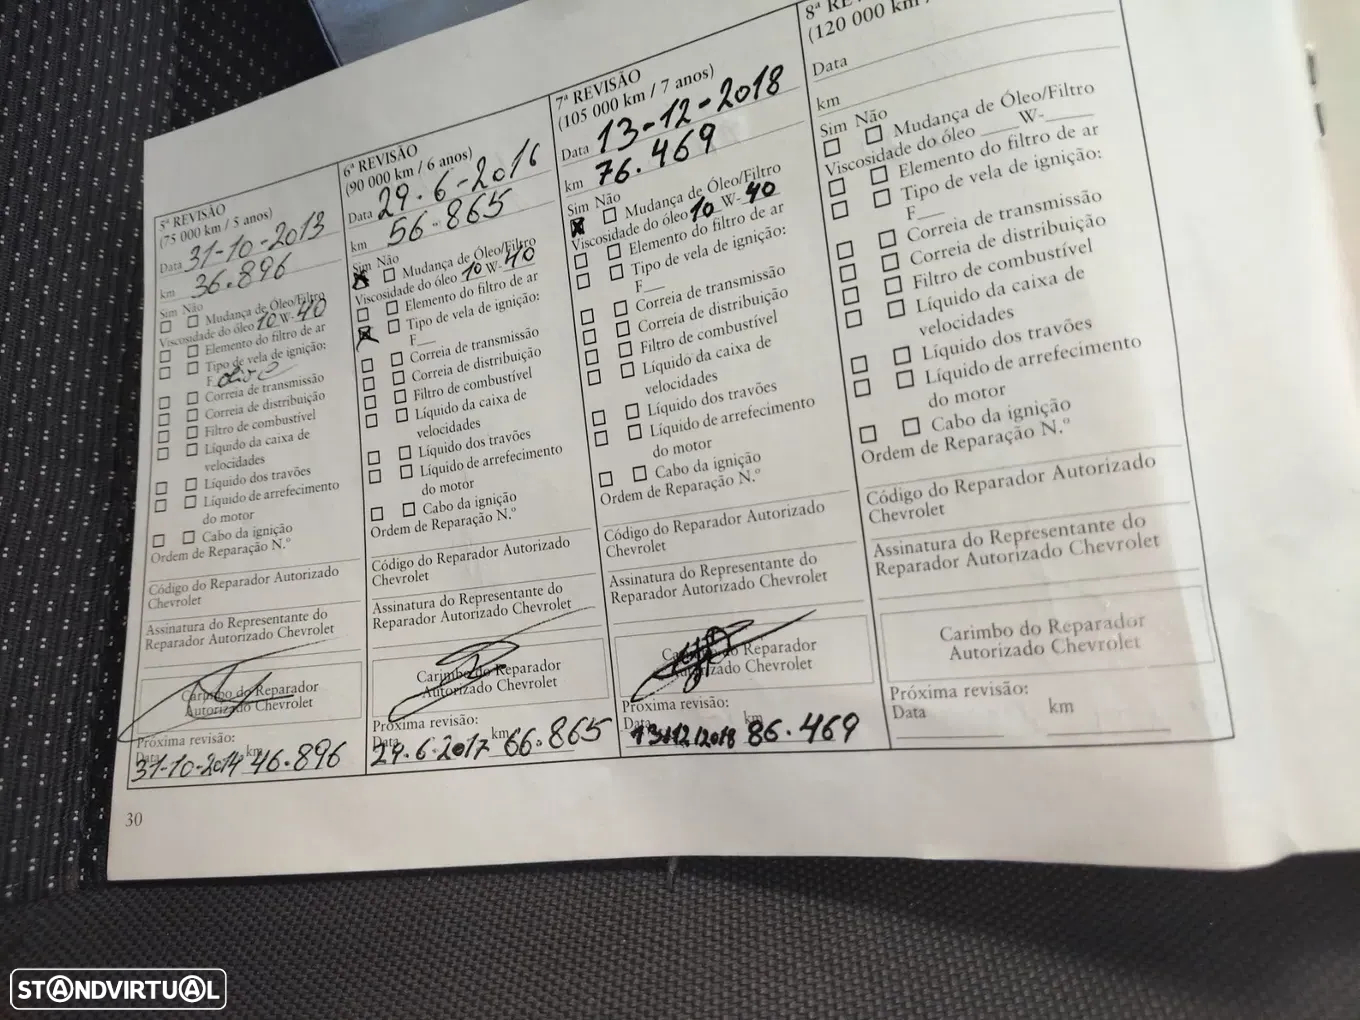 5ª REVISÃO
(75 000 km / 5 anos)
Data 31-10-2013
km 36.896
Sim Não
Mudança de Óleo/Filtro
Viscosidade do óleo 10 W- 40
Elemento do filtro de ar
Tipo de vela de ignição:
F
Correia de transmissão
Correia de distribuição
Filtro de combustível
Líquido da caixa de
velocidades
Líquido dos travões
Líquido de arrefecimento
do motor
Cabo da ignição
Ordem de Reparação N.º
Código do Reparador Autorizado
Chevrolet
Assinatura do Representante do
Reparador Autorizado Chevrolet
Carimbo do Reparador
Autorizado Chevrolet
Próxima revisão:
Data km
31-10-2014 46.896
30
6ª REVISÃO
(90 000 km / 6 anos)
Data 29.6-2016
km 56.865
Sim Não
Mudança de Óleo/Filtro
Viscosidade do óleo 10 W- 40
Elemento do filtro de ar
Tipo de vela de ignição:
F__
Correia de transmissão
Correia de distribuição
Filtro de combustível
Líquido da caixa de
velocidades
Líquido dos travões
Líquido de arrefecimento
do motor
Cabo da ignição
Ordem de Reparação N.º
Código do Reparador Autorizado
Chevrolet
Assinatura do Representante do
Reparador Autorizado Chevrolet
Carimbo do Reparador
Autorizado Chevrolet
Próxima revisão:
Data km
29.6.2017 66.865
7ª REVISÃO
(105 000 km / 7 anos)
Data 13-12-2018
km 76.469
Sim Não
Mudança de Óleo/Filtro
Viscosidade do óleo 10 W- 40
Elemento do filtro de ar
Tipo de vela de ignição:
F__
Correia de transmissão
Correia de distribuição
Filtro de combustível
Líquido da caixa de
velocidades
Líquido dos travões
Líquido de arrefecimento
do motor
Cabo da ignição
Ordem de Reparação N.º
Código do Reparador Autorizado
Chevrolet
Assinatura do Representante do
Reparador Autorizado Chevrolet
Carimbo do Reparador
Autorizado Chevrolet
Próxima revisão:
Data km
13/12/2018 86.469
8ª
(120 000 km /
Data
km
Sim Não
Mudança de Óleo/Filtro
Viscosidade do óleo ____W-____
Elemento do filtro de ar
Tipo de vela de ignição:
F__
Correia de transmissão
Correia de distribuição
Filtro de combustível
Líquido da caixa de
velocidades
Líquido dos travões
Líquido de arrefecimento
do motor
Cabo da ignição
Ordem de Reparação N.º
Código do Reparador Autorizado
Chevrolet
Assinatura do Representante do
Reparador Autorizado Chevrolet
Carimbo do Reparador
Autorizado Chevrolet
Próxima revisão:
Data km
STANDVIRTUAL